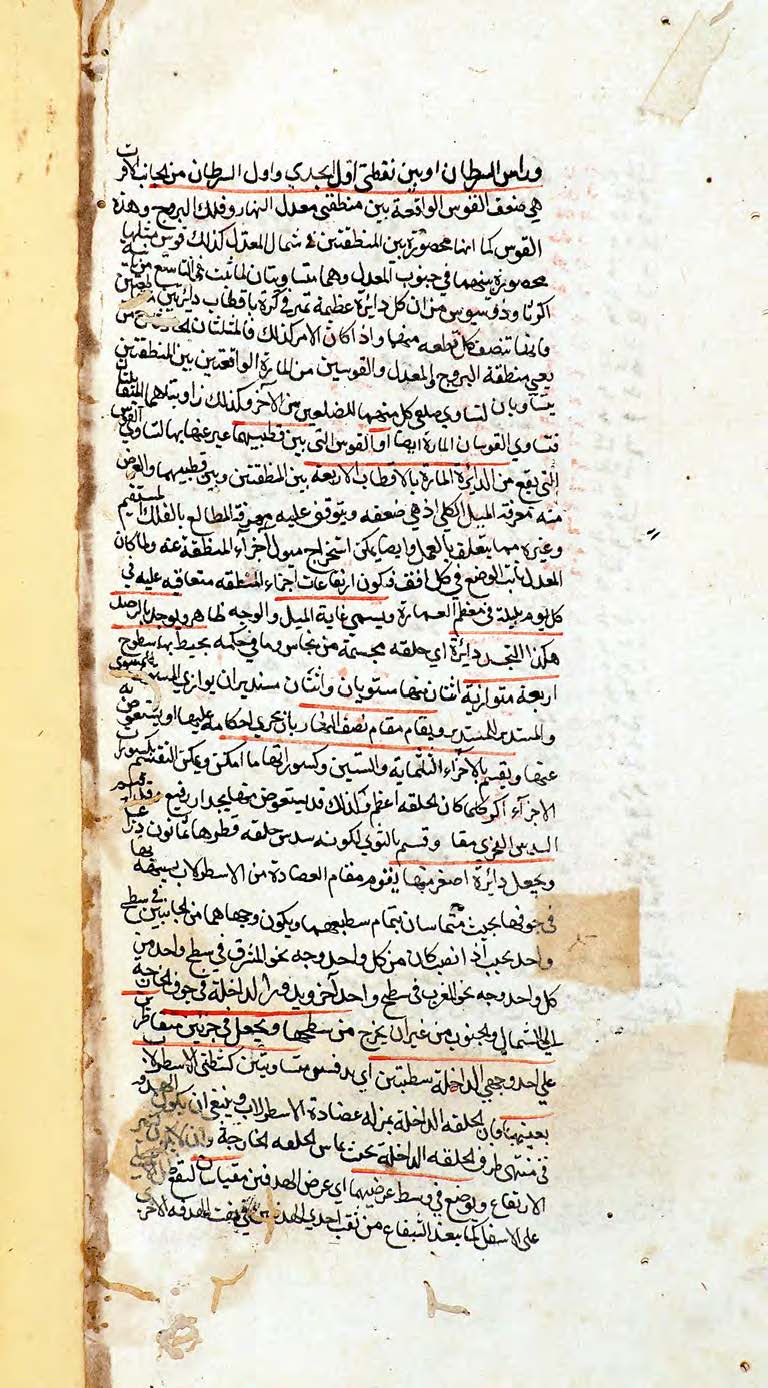 وراس السرطان او بين نقطتى اول الجدي واول السرطان من الجانب الاقرب
هي ضعف القوس الواقعة بين منطقتى معدل النهار وفلك البروج وهذه
القوس كما انها محصورة بين المنطقتين فى شمال المعدل كذلك قوس مثلها
محصورة بينهما في جنوب المعدل وهما متساويتان لما ثبت فى التاسع من
اكر ثاوذوسيوس من ان كل دائرة عظيمة تمر في كرة باقطاب دائرتين
فانها تنصف كل قطعه منها واذا كان الامر كذلك فالمثلثان
يعني منطقة البروج والمعدل والقوسين من المارة الواقعتين بين المنطقتين
يتساويان لتساوي ضلعى كل منهما للضلعين من الآخر وكذلك زاويتاهما
فتساوي القوسان المارة ايضا او القوس التى بين قطبيهما عبر عنها بها لتساوي القوس
التى يقع من الدائرة المارة بالاقطاب الاربعة بين المنطقتين وبين قطبيهما والغرض
منه معرفة الميل الكلى اذ هى ضعفه ويتوقف عليه معرفة المطالع بالفلك المستقيم
وغيره مما يتعلق بالعمل وايضا يمكن استخراج ميول اجزاء المنطقة عنه ولما كان
المعدل ثابت الوضع في كل افق فتكون ارتفاعات اجزاء المنطقه متعاقبه عليه في
كل يوم بليلة في معظم العمارة ويسمي غاية الميل والوجه ظاهر ويوجد بالرصد
هكذا التجد دائرة اي حلقه مجسمة من نحاس وما في حكمه يحيط بها سطوح
اربعة متوازية اثنان منها مستويان واثنان مستديران يوازي المستوى
والمستدير المستدير ويقام مقام نصف النهار بان يجري احكامه عليها او يستعوض به
عنها ويقسم بالاجزاء الثلثماية والستين وكسوراتها ما امكن ويمكن التقسيم بكسور
الاجزاء اكثر كلما كان الحلقه اعظم ولذلك قد يستعوض منها بجدار رفيع
السدس الفخري مقا وقسم بالثوي لكونه سدس حلقه قطرها ثمانون ذراعا
ويجعل دائرة اصغر منها ليقوم مقام العضادة من الاسطرلاب
في جوفها بحيث تماسان بتمام سطحيهما ويكون وجهاهما من الجانبين في سطح
واحد بحيث اذا نصب كان من كل واحد وجه نحو المشرق في سطح واحد ومن
كل واحد وجه نحو المغرب في سطح واحد آخر ويدور الداخلة في جوف الخارجة
الي الشمال والجنوب من غير ان يخرج من سطحها ويجعل في جزئين متناظرين
على احد وجهي الداخلة شظيتين اي هدفتين متساويتين كشظيتى الاسطرلاب
بعينهما فان الحلقه الداخلة بمنزلة عضادة الاسطرلاب وينبغى ان يكون الهدفه
في منتهى طرف الحلقه الداخلة بحيث يماس الحلقه الخارجة وان
الارتفاع ويوضع في وسط عرضيهما اي عرض الهدفين مقياسان
على الاسفل كما ينفذ الشعاع من ثقب احدي الهدفتين الهدفه الاخرى